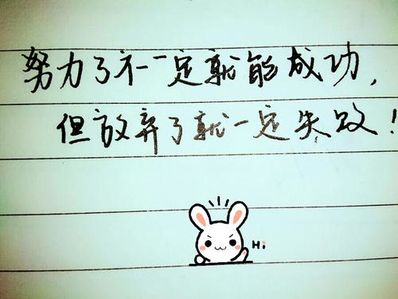 努力了不一定就能成功，
但放弃了就一定失败！
Hi